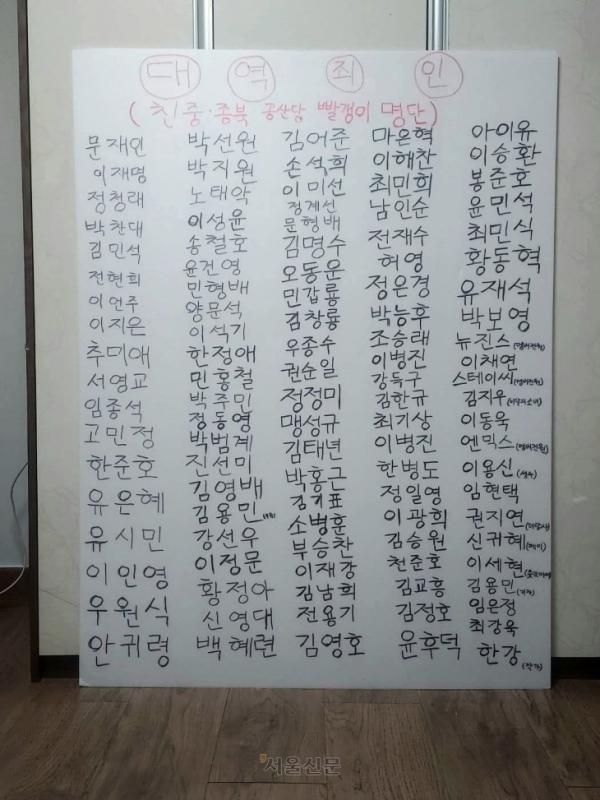 대역죄인
(친중·종북 공산당 빨갱이 명단)
문재인
이재명
정청래
박찬대
김민석
전현희
이언주
이지은
추미애
서영교
임종석
고민정
한준호
유은혜
유시민
이인영
우원식
안귀령
박선원
박지원
노태악
이성윤
송철호
윤건영
민형배
양문석
이석기
한정애
민홍철
박주민
정동영
박범계
진선미
김영배
김용민
강선우
이정문
황정아
신영대
백혜련
김어준
손석희
이미선
정계선
문형배
김명수
오동운
민갑룡
김창룡
우종수
권순일
정정미
맹성규
김태년
박홍근
김기표
소병훈
부승찬
이재강
김남희
전용기
김영호
마은혁
이해찬
최민희
남인순
전재수
허영
정은경
박능후
조승래
이병진
강득구
김한규
최기상
이병진
한병도
정일영
이광희
김승원
천준호
김교흥
김정호
윤후덕
아이유
이승환
봉준호
윤민석
최민식
황동혁
유재석
박보영
뉴진스(멤버전원)
이채연
스테이씨(멤버전원)
김지우
이동욱
엔믹스(멤버전원)
이용신(성우)
임현택
권지연
신귀혜
이세현
김용민(기자)
임은정
최강욱
한강(작가)
서울신문